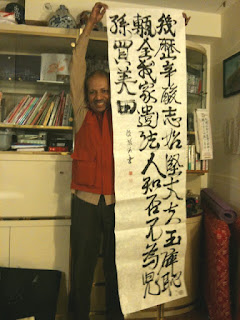 幾歷辛酸志始堅丈夫玉碎恥
甎全我家遺法人知否不為兒
孫買美田